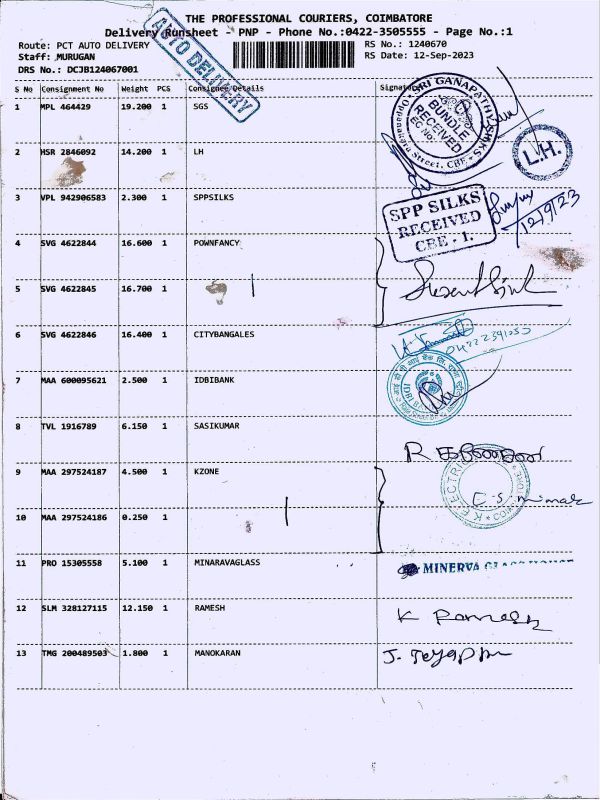 THE PROFESSIONAL COURIERS, COIMBATORE
Delivery Runsheet - PNP - Phone No.:0422-3505555 - Page No.:1
Route: PCT AUTO DELIVERY
RS No.: 1240670
Staff: MURUGAN
RS Date: 12-Sep-2023
DRS No.: DCJB124067001
AUTO DELIVERY
S No Consignment No Weight PCS Consignee Details Signature
1 MPL 464429 19.200 1 SGS
SRI GANAPATHY SILKS
BUNDLE
RECEIVED
Oppanakara Street, CBE
2 HSR 2846092 14.200 1 LH
L.H.
3 VPL 942906583 2.300 1 SPPSILKS
SPP SILKS
RECEIVED
CBE - 1.
12/9/23
4 SVG 4622844 16.600 1 POWNFANCY
5 SVG 4622845 16.700 1
6 SVG 4622846 16.400 1 CITYBANGALES
7 MAA 600095621 2.500 1 IDBIBANK
8 TVL 1916789 6.150 1 SASIKUMAR
9 MAA 297524187 4.500 1 KZONE
10 MAA 297524186 0.250 1
11 PRO 15305558 5.100 1 MINARAVAGLASS
MINERVA GLASS HOUSE
12 SLM 328127115 12.150 1 RAMESH
K Ramesh
13 TMG 200489503 1.800 1 MANOKARAN